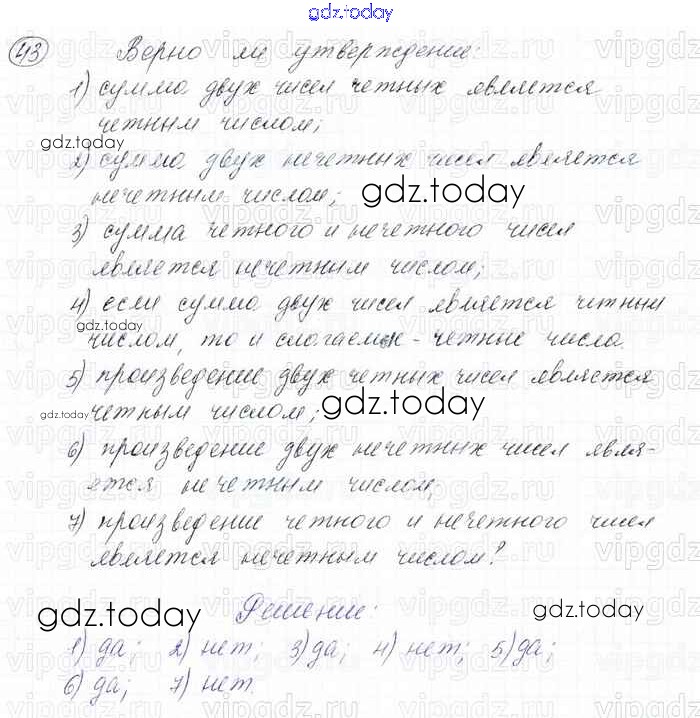 gdz.today
43 Верно ли утверждение:
1) сумма двух чисел четных является
четным числом;
gdz.today
2) сумма двух нечетных чисел является
нечетным числом;
gdz.today
3) сумма четного и нечетного чисел
является нечетным числом;
4) если сумма двух чисел является четным
gdz.today
числом, то и слагаемые - четные числа.
5) произведение двух четных чисел является
gdz.today
четным числом;
gdz.today
6) произведение двух нечетных чисел явля-
ется нечетным числом;
7) произведение четного и нечетного чисел
является нечетным числом?
gdz.today
Решение:
gdz.today
1) да; 2) нет; 3) да; 4) нет; 5) да;
6) да; 7) нет.